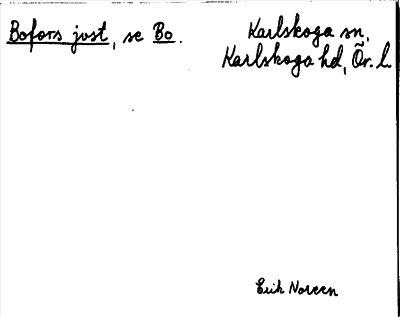 Bofors just, se Bo.
Karlskoga sn,
Karlskoga hd, Ör. l.
Erik Noreen